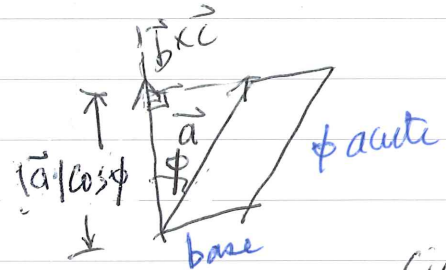 |b⃗×c⃗
a⃗
ϕ
|a⃗|cosϕ
ϕ acute
base